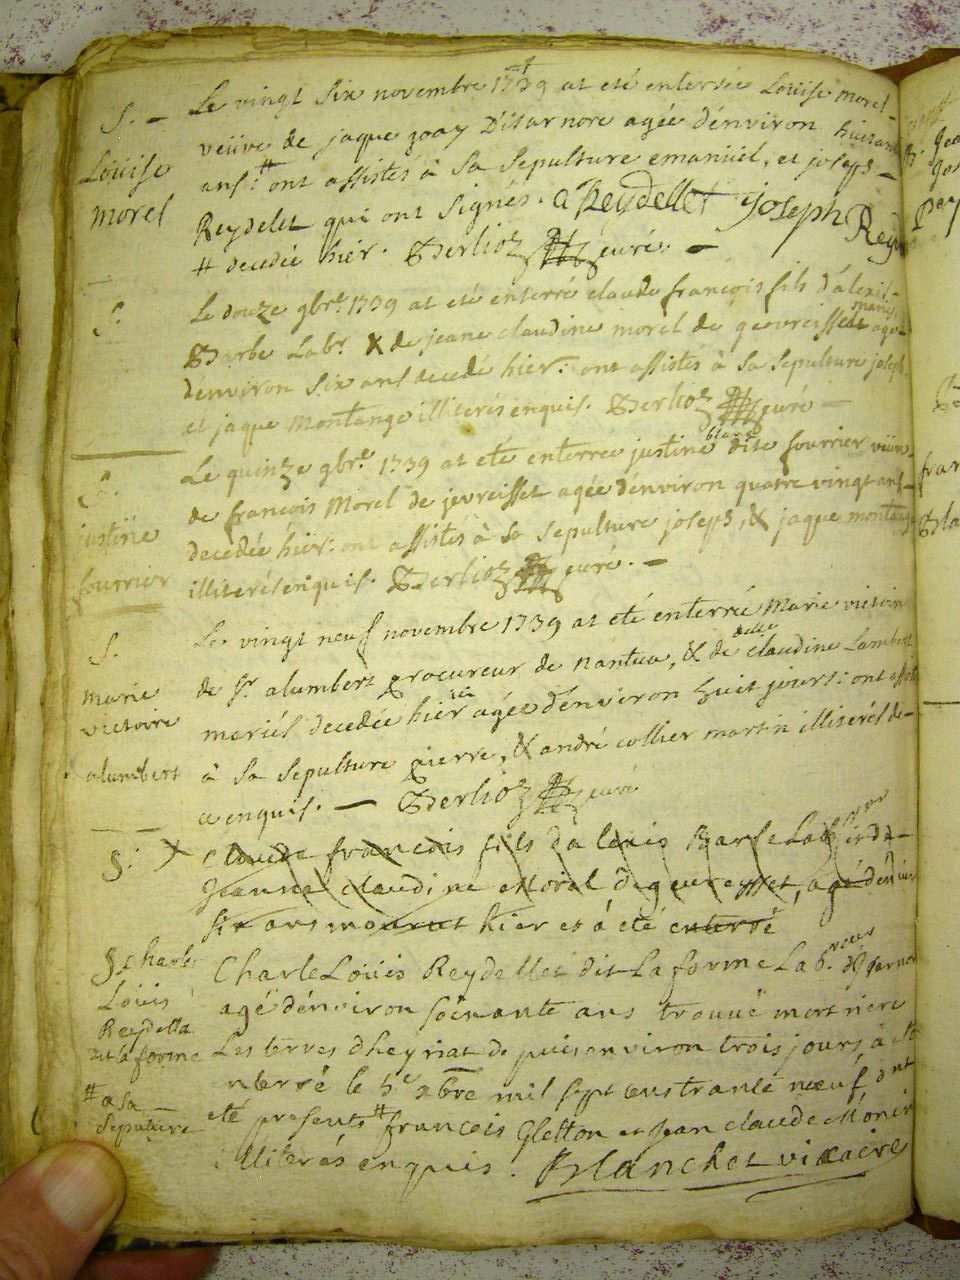 S. –
Louise
morel
Le vingt six novembre 1739 at eté enterrée Louise morel
veüve de jaque goay D'isarnore agée d'énviron
ans:# ont assistés à sa sepulture emanüel, et joseph –
Reydelet qui ont signés. a Reydellet joseph Rey
# decedée hier. Berlioz curé. –
S.
Le douze 9bre. 1739 at eté enterré claude françois fils d'alexis
Barbe Labr. & de jeane claudine morel de geovreisset mariés, agé
d'énviron six ans decedé hier: ont assistés à sa sepulture joseph
et jaque Montange illiterés enquis. Berlioz curé –
S.
justine
fourrier
Le quinze 9bre. 1739 at eté enterrée justine blanc dite fourrier veüve
de françois Morel de jevreisset agée d'énviron quatre vingt ans
decedée hier: ont assistés à sa sepulture joseph, & jaque montange
illiterés enquis. Berlioz curé. –
S.
marie
victoire
alumbert
Le vingt neuf novembre 1739 at eté enterrée Marie victoire
de Sr. alumbert procureur de nantua, & de delle claudine Lambert
mariés decedée hier agée d'énviron huit jours: ont assisté
à sa sepulture pierre, & andré collier martin illiterés de
ce enquis. – Berlioz curé
S. X
Claude francois fils da lexis Barbe Lab
Jeanne claudine Morel degeureysset, agé d'énviron
six ans mourut hier et a été enterré
S. charle
Loüis
Reydella
dit la forme
# a sa
sepulture
Charle Loüis Reydellet dit La forme Lab. d'Isarnore
agé d'énviron soixante ans trouvé mort riere
Les terres dheyriat depuis environ trois jours à été
nterré le 5e xbre mil sept cens trante neuf ont
eté presents # francois Gletton et Jean claude Monin
illiterés enquis. Blanchet vicaire